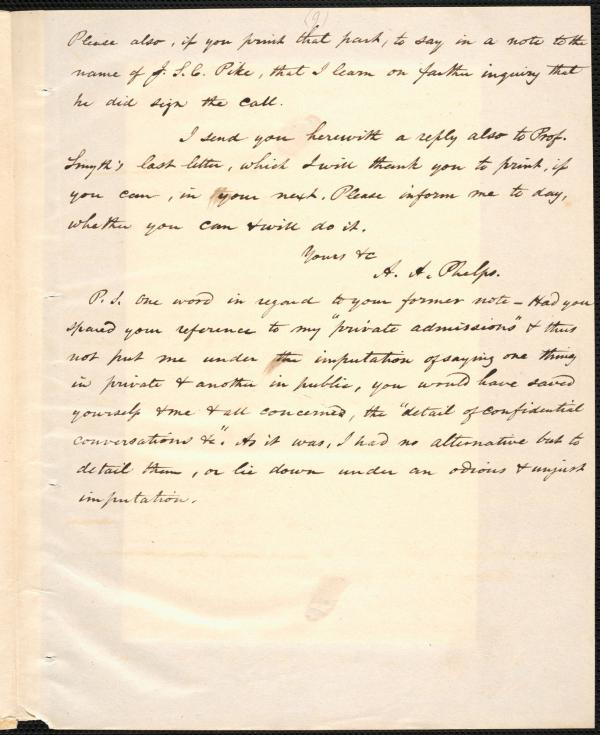 (9)
Please also, if you print that part, to say in a note to the
name of J. S. C. Pike, that I learn on farther inquiry that
he did sign the call.
I send you herewith a reply also to Prof.
Smyth's last letter, which I will thank you to print, if
you can, in your next. Please inform me to day,
whether you can & will do it.
Yours &c
A. A. Phelps.
P. S. One word in regard to your former note – Had you
spared your reference to my "private admissions" & thus
not put me under the imputation of saying one thing
in private & another in public, you would have saved
yourself & me & all concerned, the "detail of confidential
conversations &c". As it was, I had no alternative but to
detail them, or lie down under an odious & unjust
imputation.